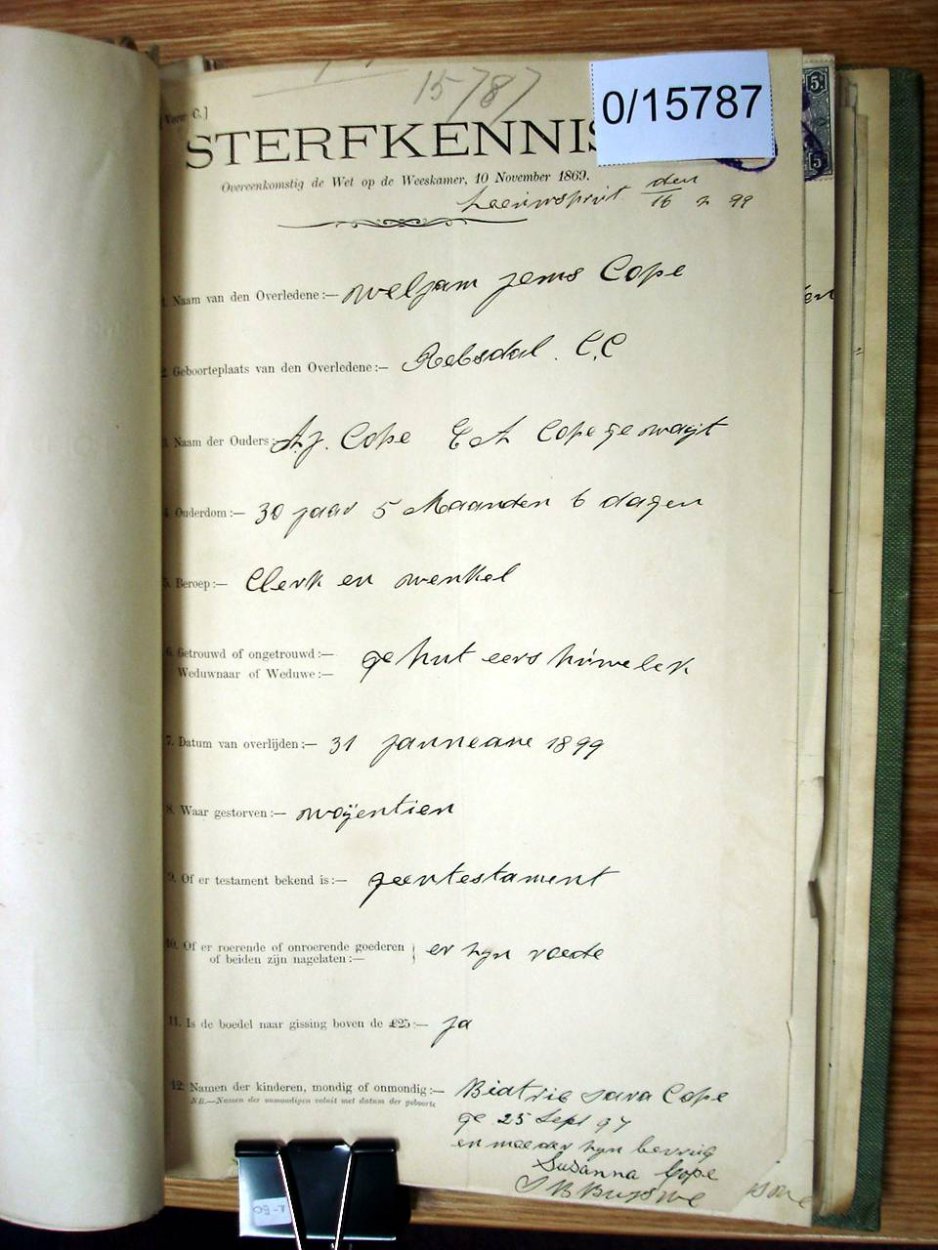 15787
0/15787
[Vorm C.]
STERFKENNIS
5
5
Overeenkomstig de Wet op de Weeskamer, 10 November 1869.
Leeuwspruit den
16 2 99
1. Naam van den Overledene:— weljam jems Cope
2. Geboorteplaats van den Overledene:— Rebsdal. C.C
3. Naam der Ouders: A.J. Cope E A Cope ge
4. Ouderdom:— 30 jaar 5 Maanden 6 dagen
5. Beroep:— Clerk en wenkel
6. Getrouwd of ongetrouwd:—
Weduwnaar of Weduwe:—
7. Datum van overlijden:— 31 janneare 1899
8. Waar gestorven:—
9. Of er testament bekend is:— geentestament
10. Of er roerende of onroerende goederen
of beiden zijn nagelaten:— er zyn roerde
11. Is de boedel naar gissing boven de £25:— ja
12. Namen der kinderen, mondig of onmondig:— Biatrie sara Cope
NB.—Namen der onmondigen voluit met datum der geboorte
ge 25 Sept 97
en
Susanna Cope